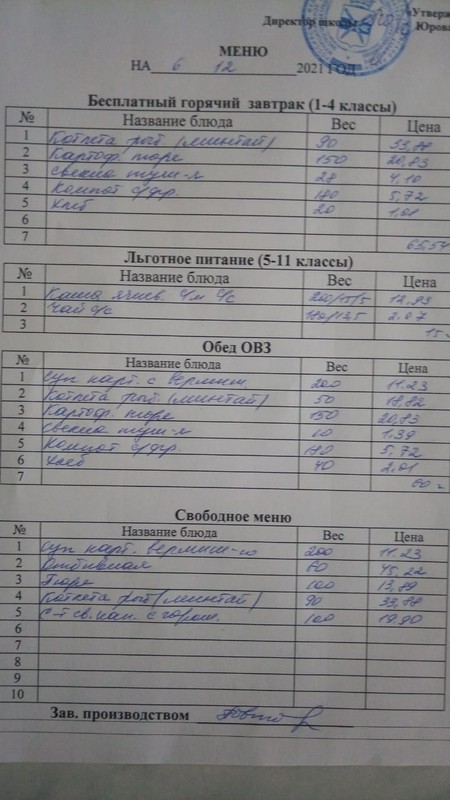 «Утверж
Директор школы Юрова
МЕНЮ
НА 6 12 2021 ГОД
Бесплатный горячий завтрак (1-4 классы)
№ Название блюда Вес Цена
1 Котлета рыб (минтай) 90 33,88
2 Картоф. пюре 150 20,83
3 свекла туш-я 28 4.10
4 Компот с/фр. 180 5,72
5 Хлеб 20 1,01
6
7 65,54
Льготное питание (5-11 классы)
№ Название блюда Вес Цена
1 Каша ячнев. с/м с/с 200/15/5 12,93
2 Чай с/с 180/13,5 2.07
3 15
Обед ОВЗ
№ Название блюда Вес Цена
1 Суп карт. с вермиш. 200 11.23
2 Котлета рыб. (минтай) 50 18,82
3 Картоф. пюре 150 20,83
4 свекла туш-я 10 1.39
5 Компот с/фр. 180 5,72
6 Хлеб 40 2,01
7 60
Свободное меню
№ Название блюда Вес Цена
1 Суп карт. вермиш-ю 200 11.23
2 Отбивная 60 45,22
3 Пюре 100 13,89
4 Котлета рыб (минтай) 90 33,88
5 С-т св. кап. с горош. 100 19.90
6
7
8
9
10
Зав. производством